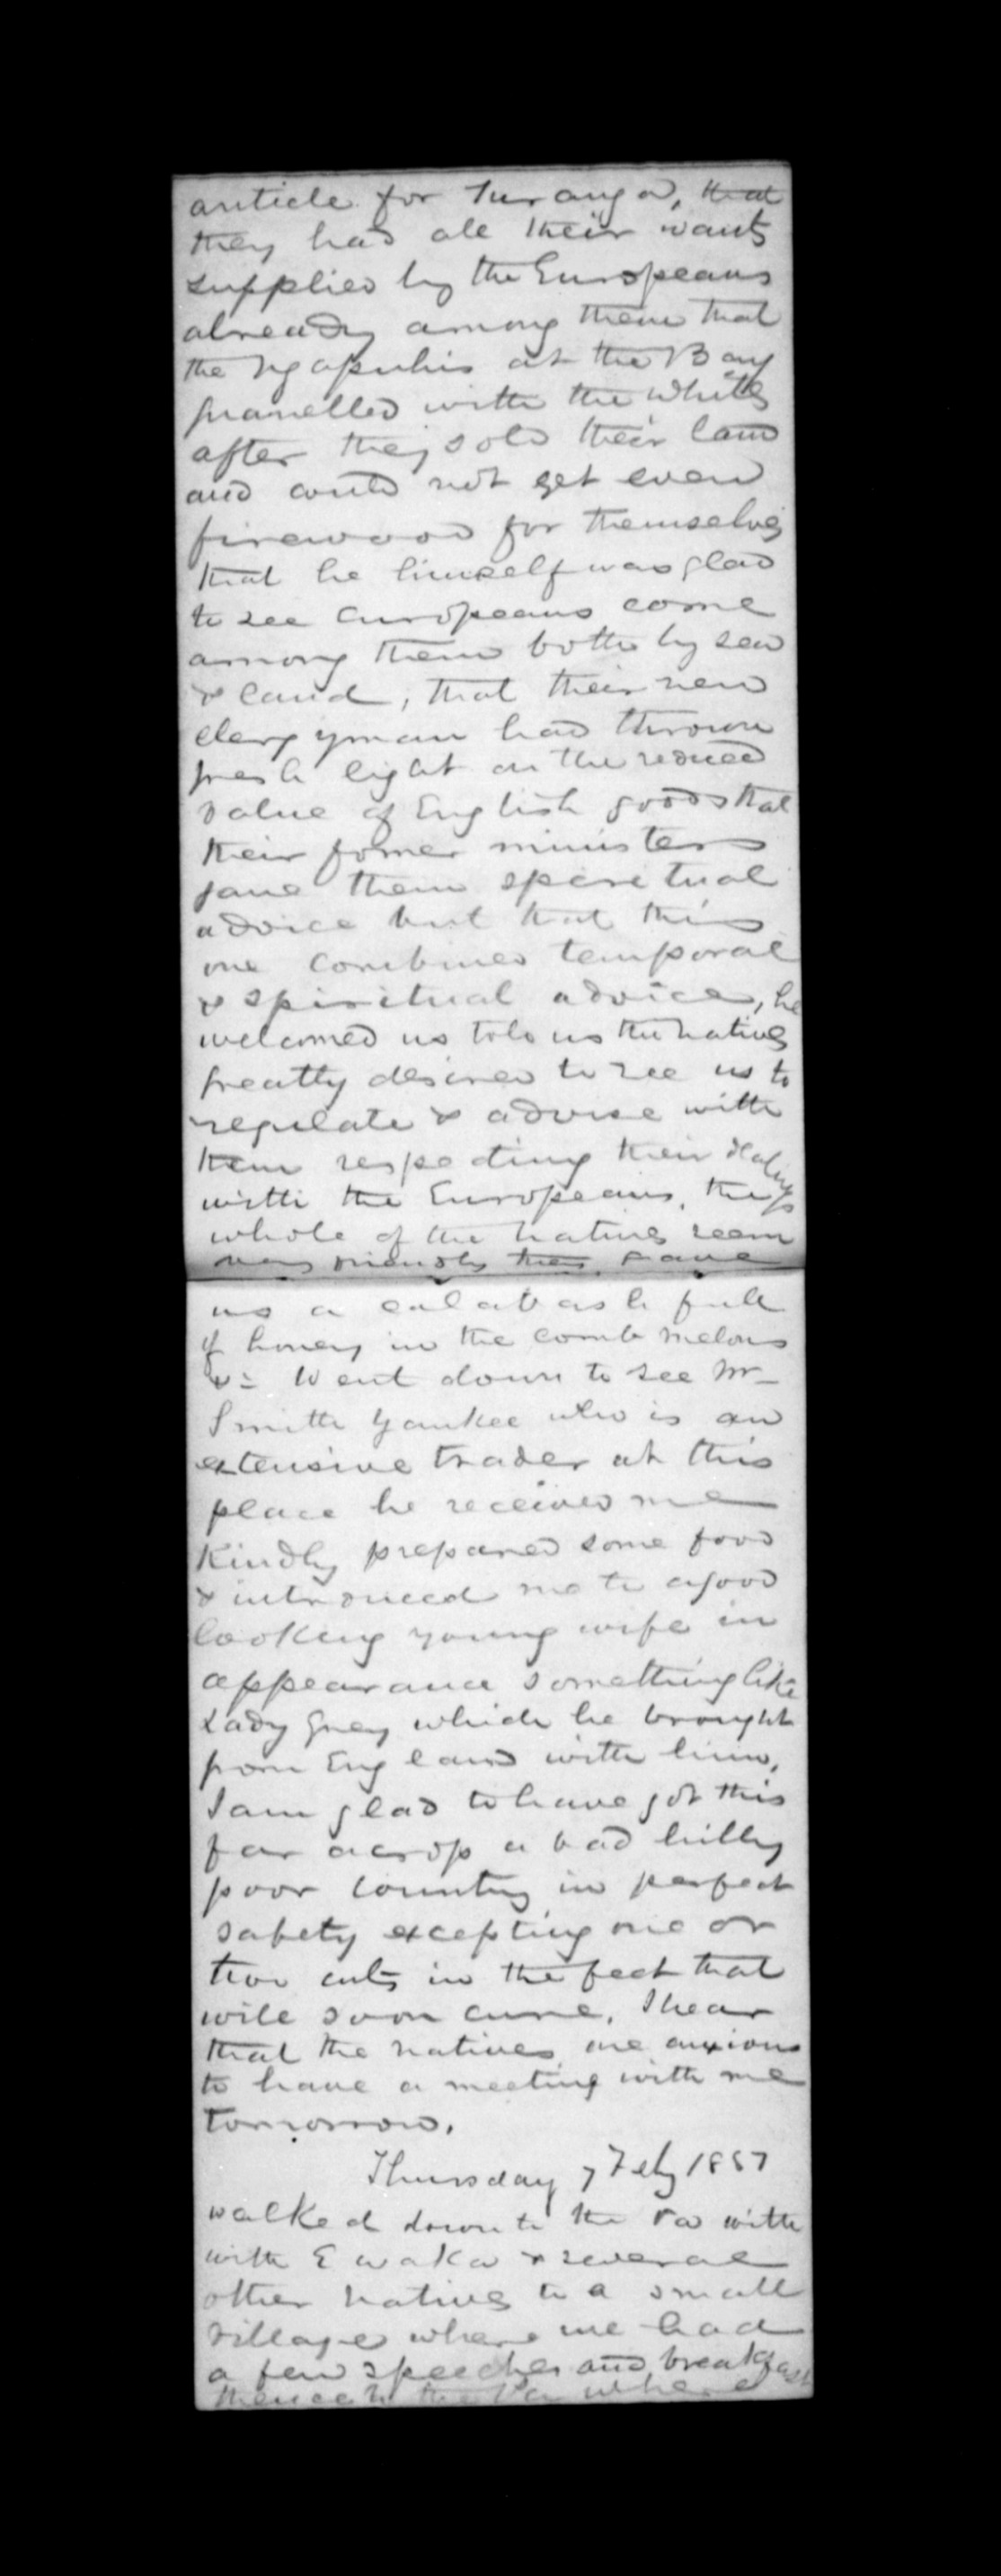 article for Turanga, that
they had all their wants
supplied by the Europeans
already among them that
the Ngapuhis at the Bay
quarelled with the whites
after they sold their land
and could not get even
firewood for themselves
that he himself was glad
to see Europeans come
among them both by sea
& land, that their new
clergyman had thrown
fresh light on the reduced
value of English goods that
their fomer ministers
gave them spiritual
advice but that this
one combined temporal
& spiritual advice, he
welcomed us told us the natives
greatly desired to see us to
regulate & advise with
them respecting their dealings
with the Europeans, the
whole of the natives seem
very friendly they gave
us a calabash full
of honey in the comb melons
&c Went down to see Mr
Smith Yankee who is an
extensive trader at this
place he received me
kindly prepared some food
& introduced me to a good
looking young wife in
appearance something like
Lady Grey which he brought
from England with him,
I am glad to have got this
far across a bad hilly
poor country in perfect
safety excepting one or
two cuts in the feet that
will soon cure, I hear
that the natives are anxious
to have a meeting with me
tomorrow.
Thursday 7 Feby 1857
walked down to the Pa with
with E waka & several
other natives to a small
village where we had
a few speeches and breakfast
thence to the Pa where